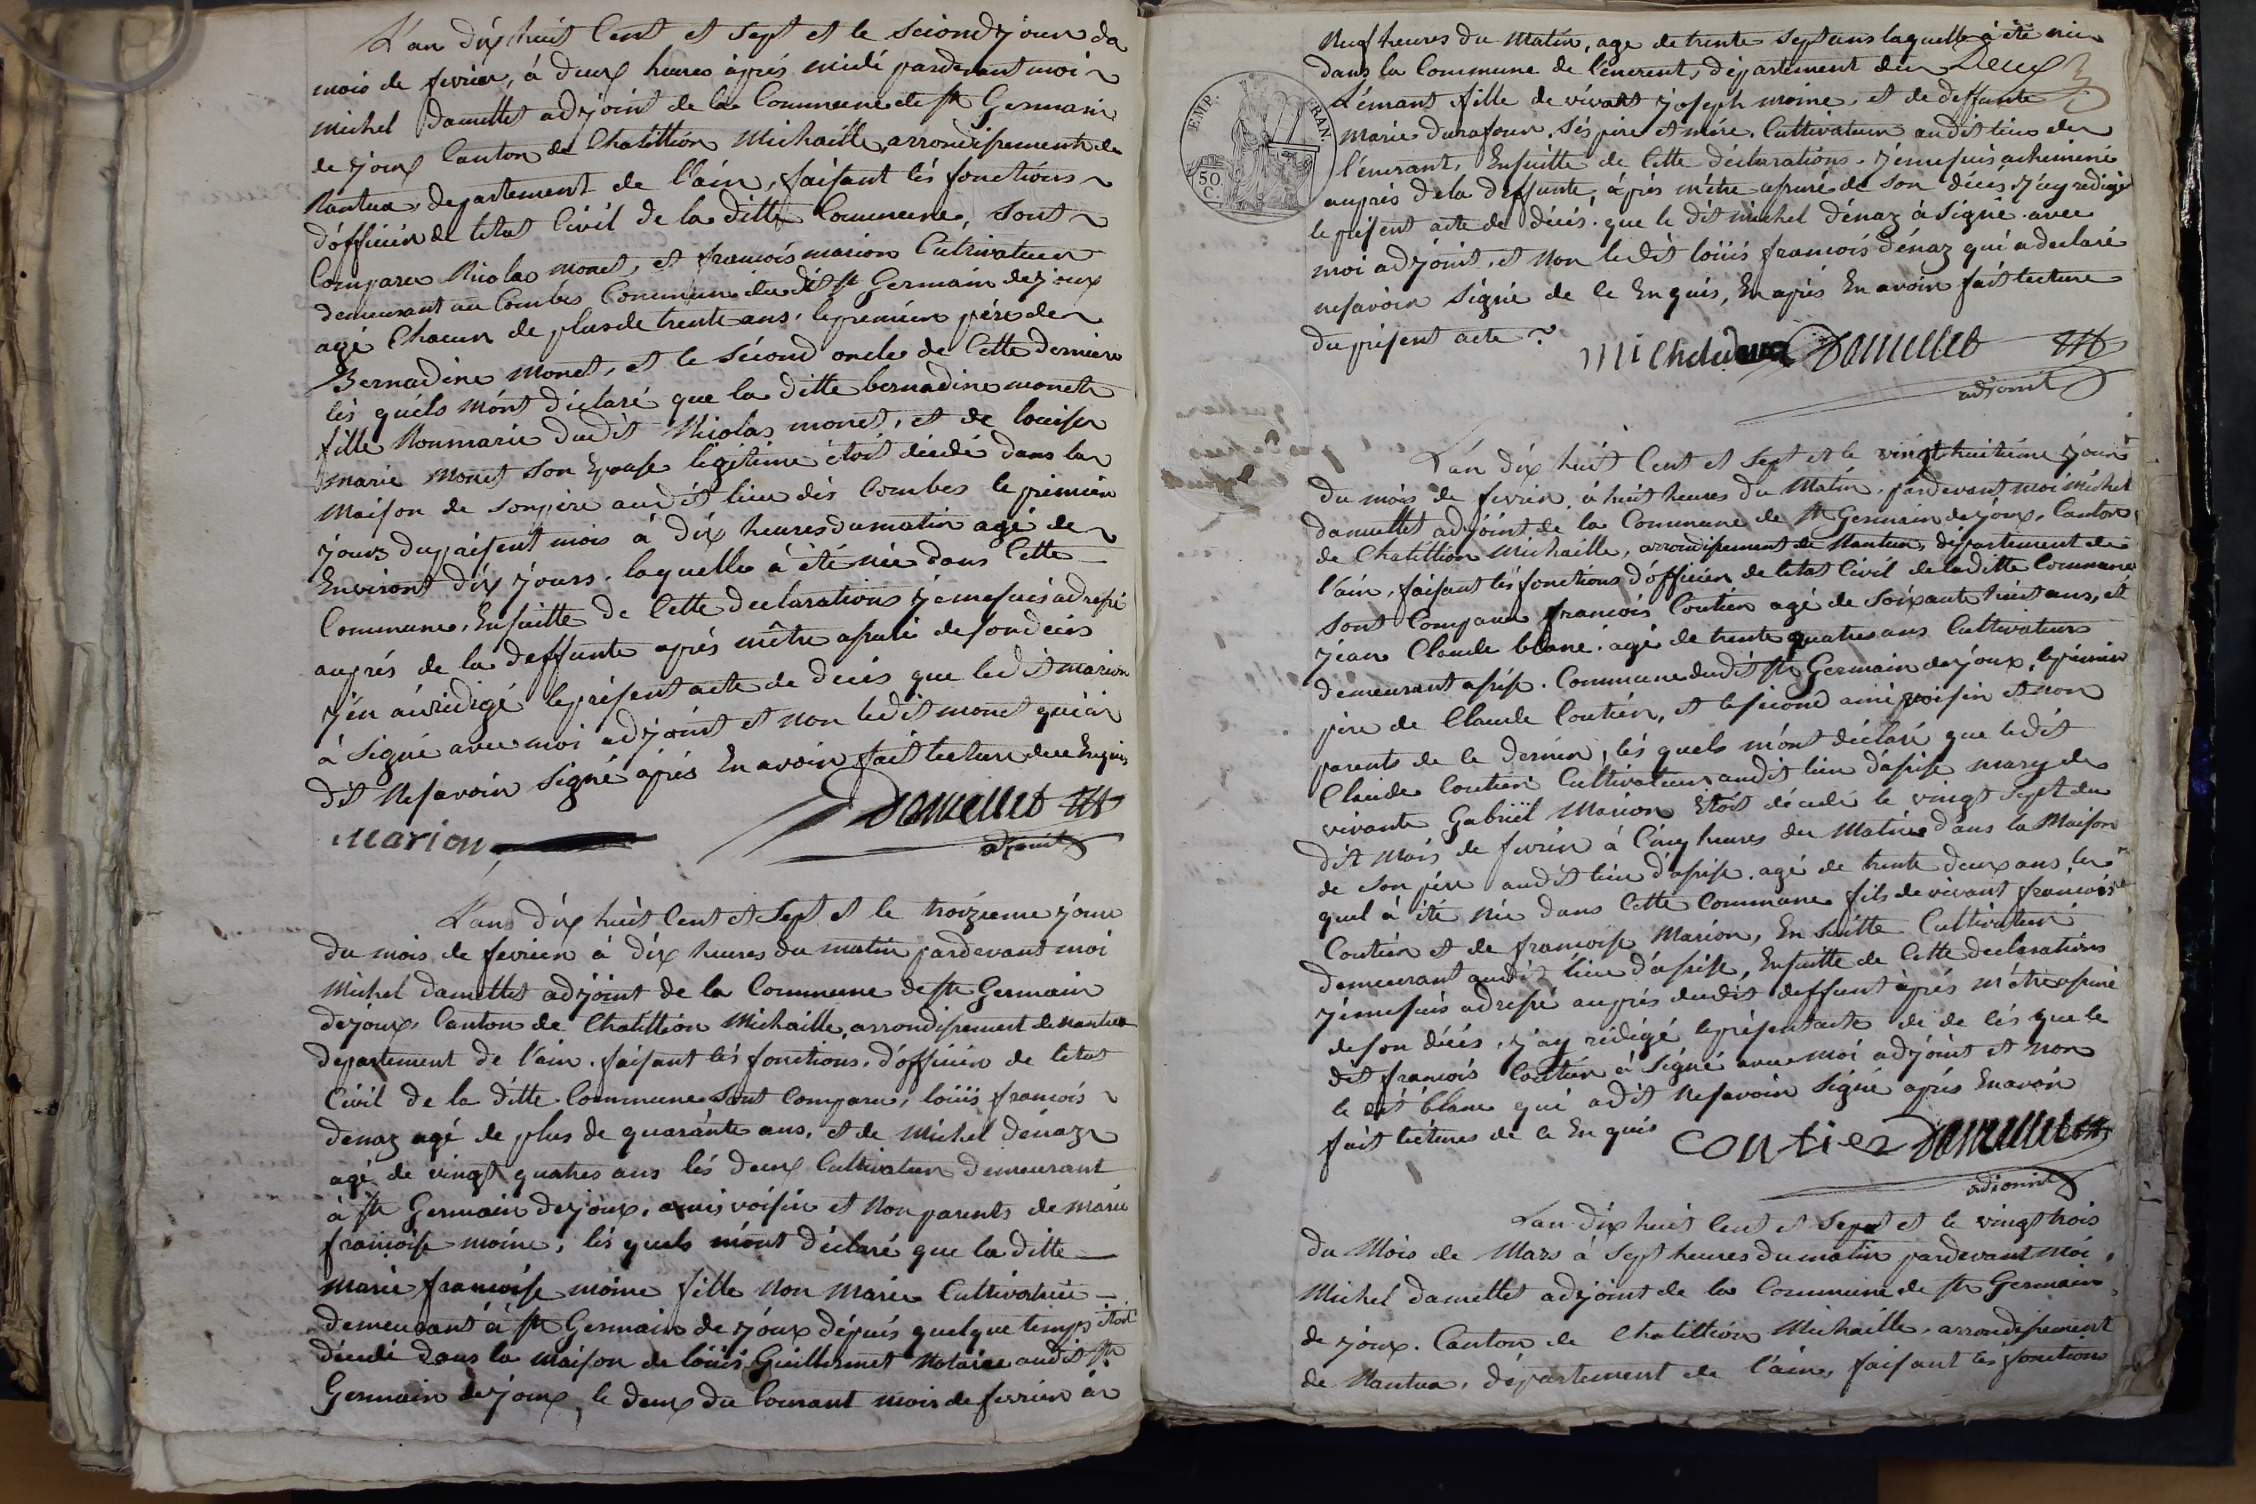 L'an dix huit Cent et Sept et le second jour du
mois de fevrier, à deux heures après midi pardevant moi
michel Damettet adjoint de la Commune de St Germain
de joux Canton de Chatillion Michaille, arrondissement de
Nantua, departement de l'ain, faisant lés fonctions
d'officier de letat Civil de la ditte Commune, sont
Comparu Nicolas monet, et francois marion Cultivateur
demeurant au Combes Commune du dit St Germain de joux
agé Chacun de plus de trente ans, le premier pére de
Bernadine monet, et le sécond oncle de Cette derniere
lés quéls m'ont déclaré que la ditte bernadine monet
fille Nonmarie dudit Nicolas monet, et de louise
marie monet son Epouse legitime étoit décédé dans la
Maison de son pére audit lieu dés Combes le premier
jours du présent mois à dix heures du matin agé de
Environt dix jours, laquelle à été née dans Cette
Commune, Ensuitte de Cette declarations je me suis adressé
auprés de la deffunte aprés m'être assuré de son décés
j'en ai rédigé le présent acte de décés que ledit marion
à Signé avec moi adjoint et non ledit monet qui à
dit Nesavoir Signé aprés En avoir fait lecture de ce Enquis
Marion Damettet
adjoint
L'ans dix huit Cent et Sept et le troizieme jour
du mois de fevrier à dix heures du matin pardevant moi
Michel damettet adjoint de la Commune de St Germain
de joux, Canton de Chatillion Michaille, arrondissement de nantua
departement de l'ain, faisant lés fonctions, d'officier de letat
Civil de la ditte Commune Sont Comparu, loüis francois
dénaz agé de plus de quarante ans, et de Michel dénaz
agé de vingt quatres ans lés deux Cultivateur demeurant
à St Germain de joux, amis voisin et Non parents de marie
francoise moine, lés quels m'ont déclaré que la ditte
marie francoise moine fille Non Marie Cultivatrice
demeurant à St Germain de joux dépuis quelque temps étoit
décédé dans la maison de loüis Guillermet Notaire audit St
Germain de joux, le deux du Courant mois de fevrier à
Neuf heures du Matin, age de trente Sept ans laquelle à été née
dans la Commune de l'énerent, département du Deux
Lémant fille de vivant joseph moine, et de deffunte
Marie durafour, sés pére et mére, Cultivateur audit lieu de
l'énerant, Ensuitte de Cette déclarations, je me suis acheminé
auprés de la deffunte, aprés m'être assuré de son décés j'ay redigé
le présent acte de décés, que le dit michel dénaz à Signé avec
moi adjoint, et Non ledit loüis francois dénaz qui a declaré
nesavoir Signé de ce Enquis, En aprés En avoir fait lecture
du présent acte
Michel denaz Damettet
adjoint
EMP. FRAN.
50 C.
L'an dix huit Cent et Sept et le vingt huitiéme jour
du mois de fevrier, à huit heures du Matin, pardevant moi michel
damettet adjoint de la Commune de St Germain de joux, Canton
de Chatillion Michaille, arrondissement de Nantua, département de
l'ain, faisant lés fonctions d'officier de letat Civil de laditte Commune
Sont Comparu francois Coutier agé de Soixante huit ans, et
jean Claude blanc, agé de trente quatres ans Cultivateur
demeurant assise, Commune dudit St Germain de joux, le premier
pére de Claude Coutier, et le sécond ami voisin et non
parents de ce dernier, lés quels m'ont déclaré que ledit
Claude Coutier Cultivateur audit lieu d'assise mary de
vivante Gabriël Marion Etoit décédé le vingt Sept du
dit Mois de fevrier à Cinq heures du Matin dans la Maison
de Son pére audit lieu d'assise, agé de trente deux ans, le
quel à été née dans Cette Commune fils de vivant francois
Coutier et de francoise Marion, En Suitte Cultivateur
demeurant audit lieu d'assise, Ensuitte de Cette declarations
je me suis adressé auprés dudit deffunt aprés m'être assuré
de son décés, j'ay rédigé le présent acte de de cés que le
dit francois Coutier à Signé avec moi adjoint et Non
le dit blanc qui a dit Nesavoir Signé aprés En avoir
fait lectures de ce Enquis Coutier Damettet
adjoint
L'an dix huit Cent et Sept et le vingt trois
du Mois de Mars à Sept heures du matin pardevant moi
Michel damettet adjoint de la Commune de St Germain
de joux, Canton de Chatillion Michaille, arrondissement
de Nantua, département de l'ain, faisant lés fonctions